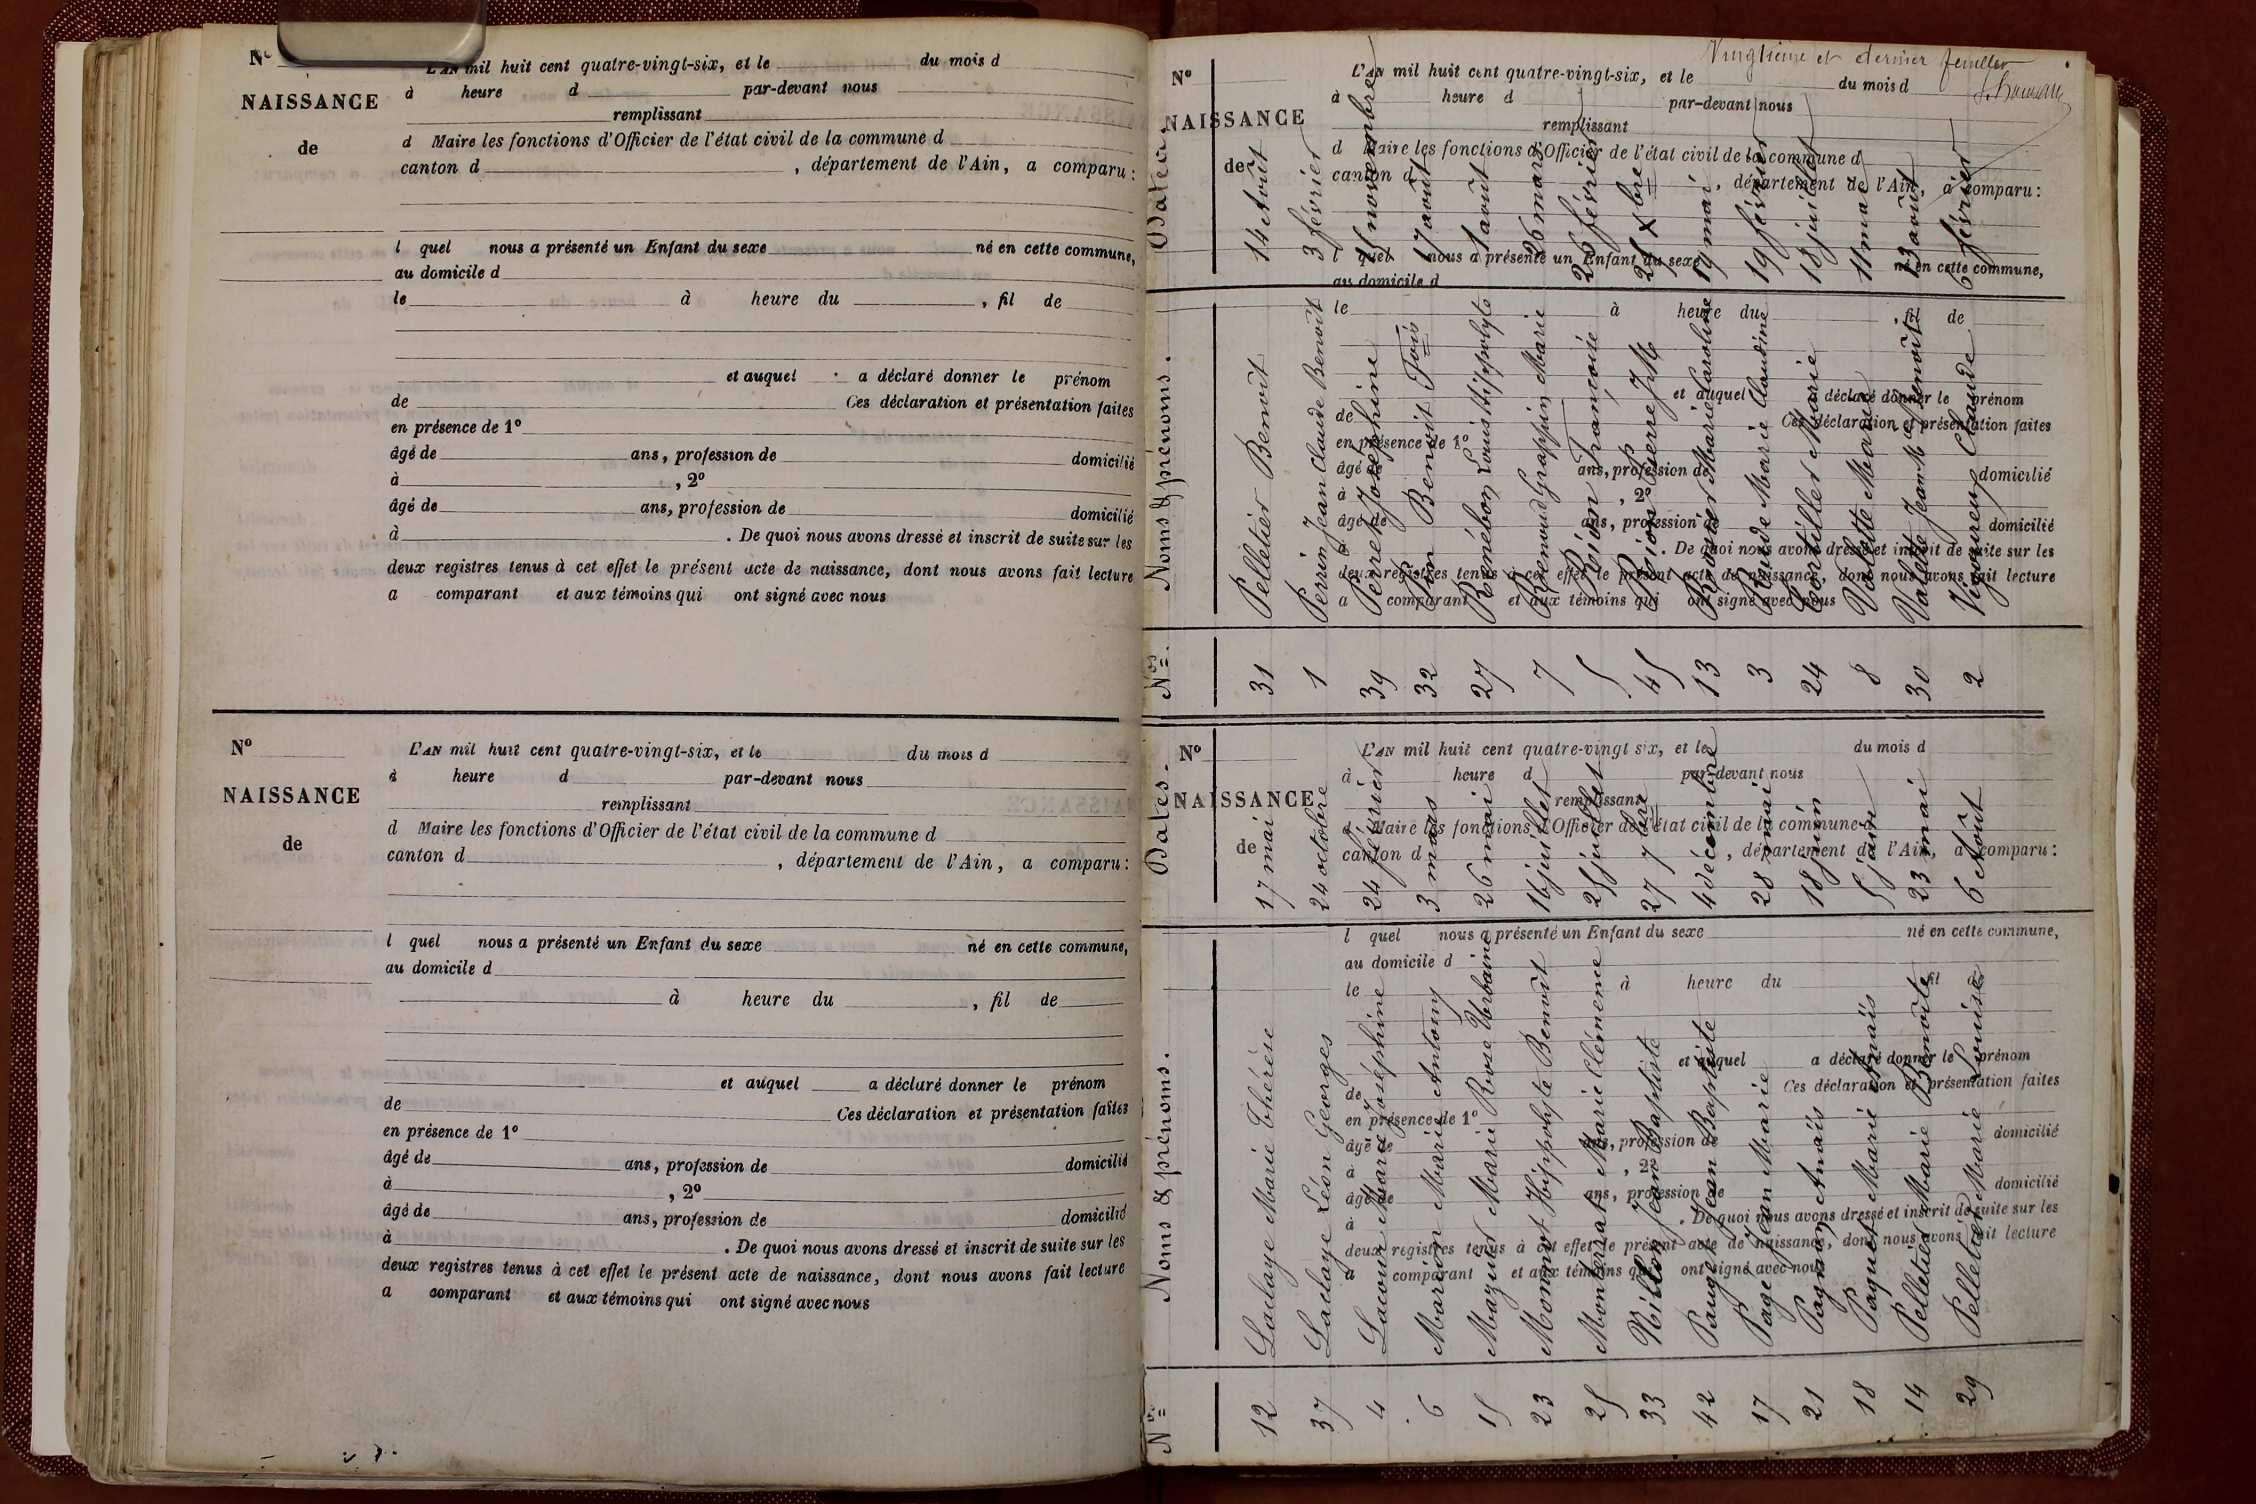 Nº
L'AN mil huit cent quatre-vingt-six, et le du mois d
NAISSANCE
à heure d par-devant nous
remplissant
de
d Maire les fonctions d'Officier de l'état civil de la commune d
canton d , département de l'Ain, a comparu:
l quel nous a présenté un Enfant du sexe né en cette commune,
au domicile d
le à heure du , fil de
et auquel a déclaré donner le prénom
de Ces déclaration et présentation faites
en présence de 1º
âgé de ans, profession de domicilié
à , 2º
âgé de ans, profession de domicilié
à . De quoi nous avons dressé et inscrit de suite sur les
deux registres tenus à cet effet le présent acte de naissance, dont nous avons fait lecture
a comparant et aux témoins qui ont signé avec nous
Nº
L'AN mil huit cent quatre-vingt-six, et le du mois d
NAISSANCE
à heure d par-devant nous
remplissant
de
d Maire les fonctions d'Officier de l'état civil de la commune d
canton d , département de l'Ain, a comparu:
l quel nous a présenté un Enfant du sexe né en cette commune,
au domicile d
à heure du , fil de
et auquel a déclaré donner le prénom
de Ces déclaration et présentation faites
en présence de 1º
âgé de ans, profession de domicilié
à , 2º
âgé de ans, profession de domicilié
à . De quoi nous avons dressé et inscrit de suite sur les
deux registres tenus à cet effet le présent acte de naissance, dont nous avons fait lecture
a comparant et aux témoins qui ont signé avec nous
Vingtième et dernier feuillet
Nº
L'AN mil huit cent quatre-vingt-six, et le du mois d
NAISSANCE
à heure d par-devant nous
remplissant
de
d Maire les fonctions d'Officier de l'état civil de la commune d
canton d , département de l'Ain, a comparu:
l quel nous a présenté un Enfant du sexe né en cette commune,
au domicile d
le à heure du , fil de
et auquel a déclaré donner le prénom
de Ces déclaration et présentation faites
en présence de 1º
âgé de ans, profession de domicilié
à , 2º
âgé de ans, profession de domicilié
à . De quoi nous avons dressé et inscrit de suite sur les
deux registres tenus à cet effet le présent acte de naissance, dont nous avons fait lecture
a comparant et aux témoins qui ont signé avec nous
Nº
L'AN mil huit cent quatre-vingt six, et le du mois d
NAISSANCE
à heure d par-devant nous
remplissant
de
d Maire les fonctions d'Officier de l'état civil de la commune
canton d , département de l'Ain, a comparu:
l quel nous a présenté un Enfant du sexe né en cette commune,
au domicile d
le à heure du fil de
et auquel a déclaré donner le prénom
de Ces déclaration et présentation faites
en présence de 1º
âgé de ans, profession de domicilié
à , 2º
âgé de ans, profession de domicilié
à . De quoi nous avons dressé et inscrit de suite sur les
deux registres tenus à cet effet le présent acte de naissance, dont nous avons fait lecture
a comparant et aux témoins qui ont signé avec nous
Nos. Noms & prénoms. Dates.
12 Laclaye Marie Thérèse 17 mai
37 Laclaye Léon Georges 24 octobre
4 Lacour Marie Joséphine 24 février
6 Marion Marie Antony 3 mars
15 Mazuer Marie Rose Urbaine 26 mai
23 Monnot Hippolyte Benoît 16 juillet
25 Montarrat Marie Clémence 25 juillet
33 Nillon Jean Baptiste 27 7bre
42 Pauget Jean Baptiste 4 décembre
17 Page Jean Marie 28 mai
21 Pagnon Anaïs 18 juin
18 Paquet Marie Anaïs 5 juin
14 Pelletier Marie Benoîte 23 mai
29 Pelletier Marie Louise 6 Août
Nos. Noms & prénoms. Dates.
31 Pelletier Benoît 14 Août
1 Perrin Jean Claude Benoît 3 février
39 Perret Joséphine 15 novembre
32 Pin Benoit Fois 17 août
27 Ponénbon Louis Hippolyte 1 août
7 Prenoud Grappin Marie 26 mars
5 Rion Françoise 26 février
45 Rion Pierre JM 25 Xbre
13 Brovier Marie Caroline 19 mai
3 Rude Marie Claudine 19 février
24 Tertiller Marie 18 juillet
8 Valette Marie 11 mai
30 Valette Jean M e Benoît 13 août
2 Vigoureux Claude 6 février